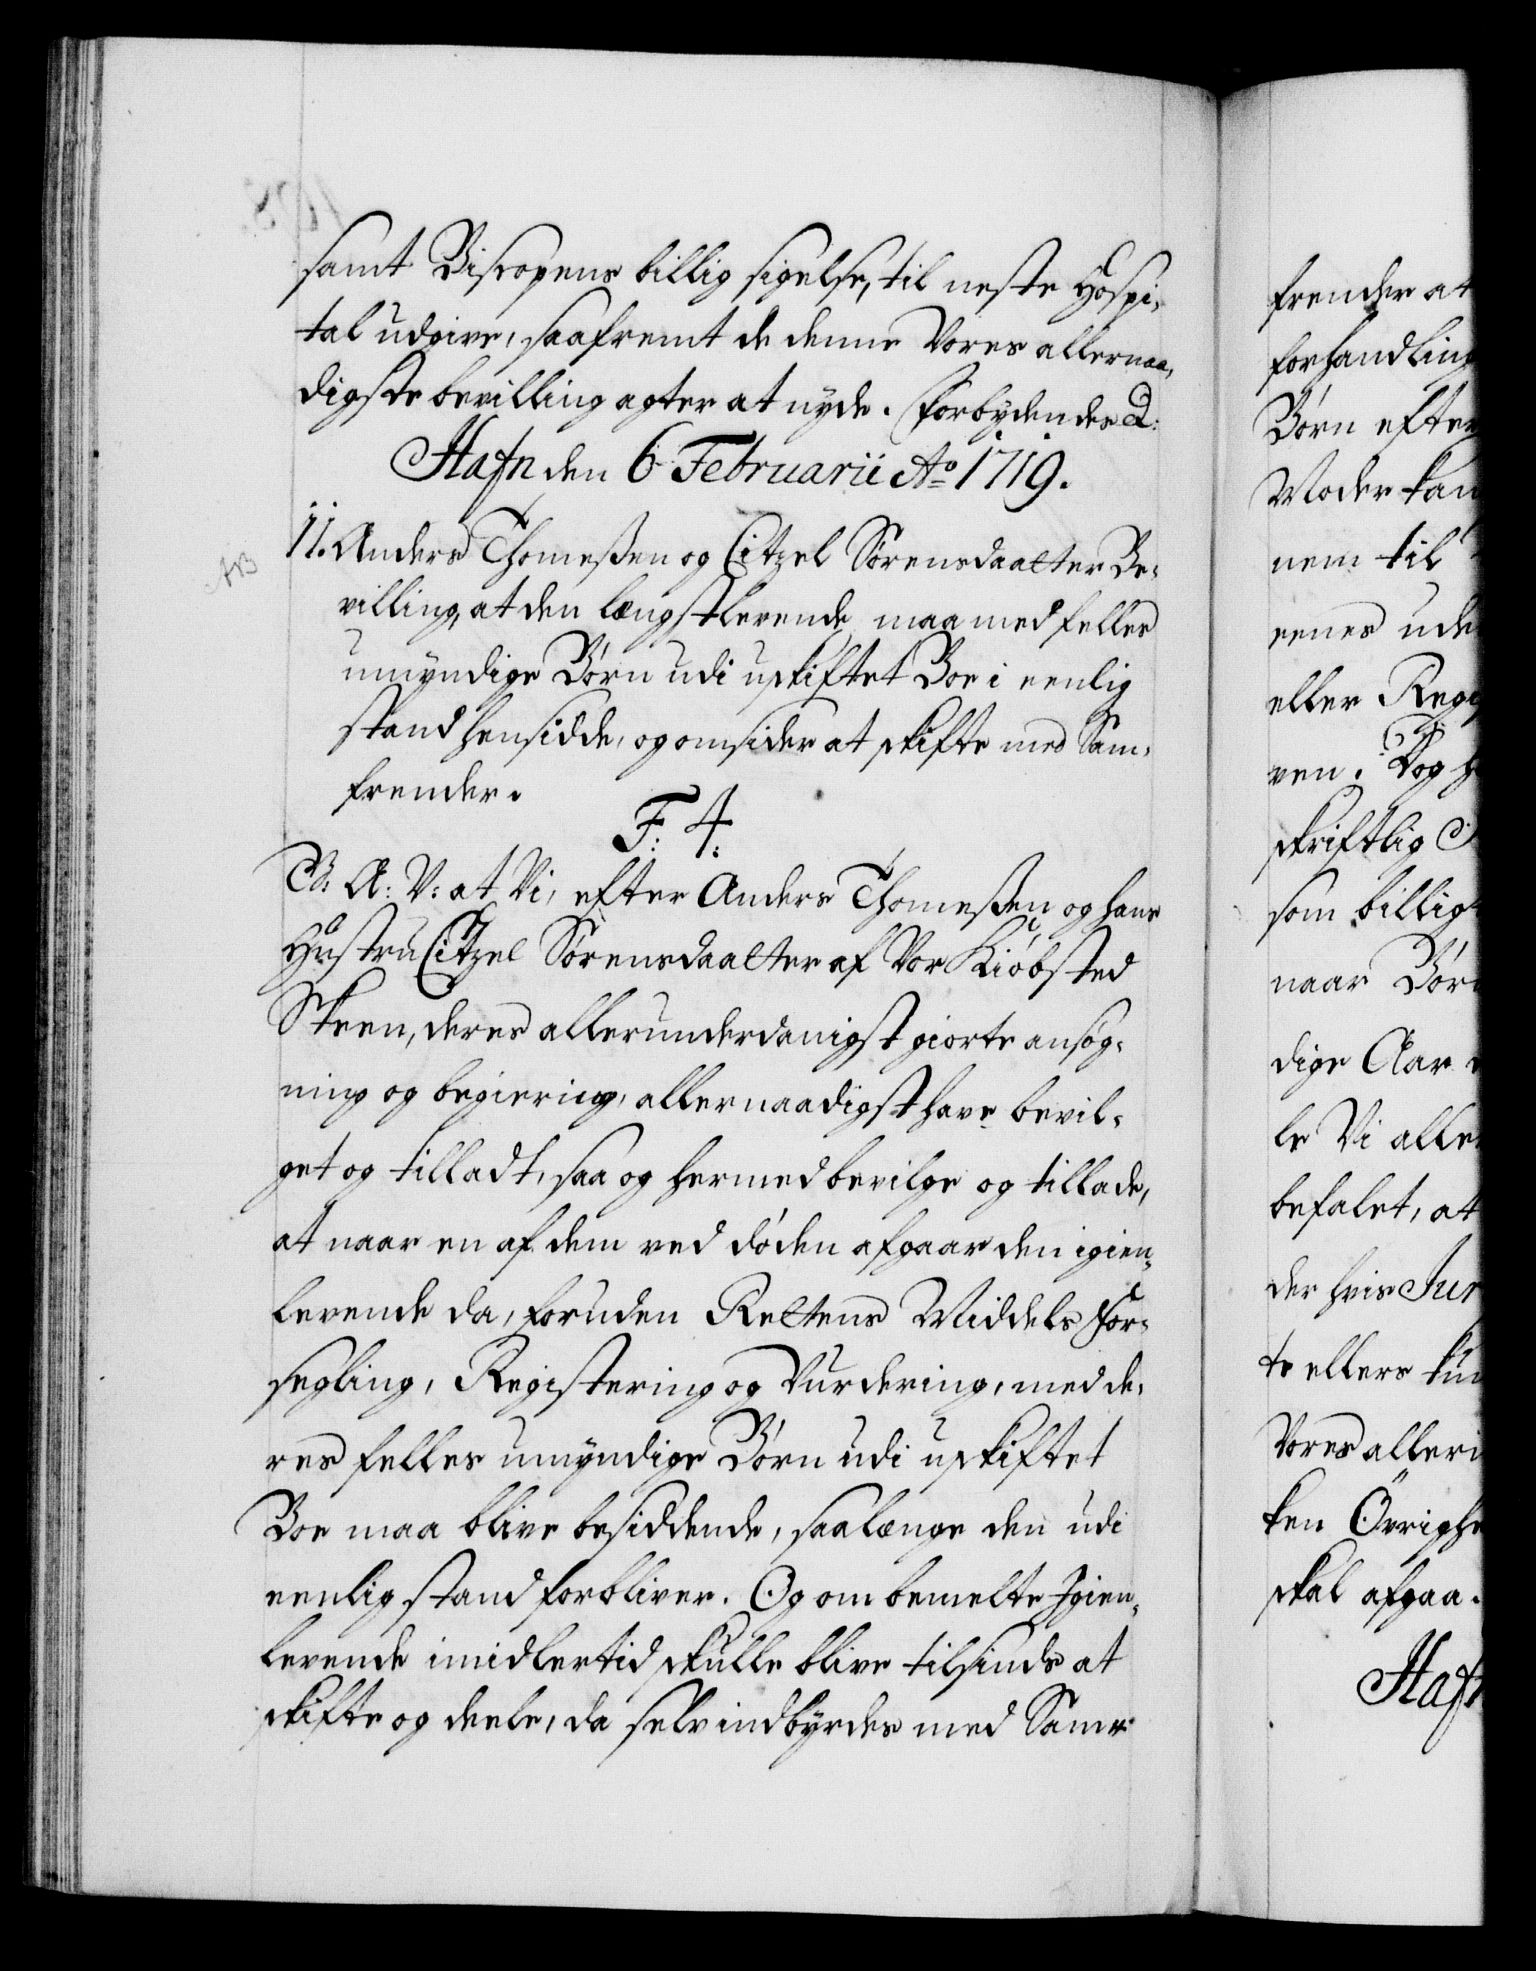 samt Biscopens billig sigelse, til neste Hospi,
tal udgive, saafremt de denne Vores allernaa,
digste bevilling agter at nyde. Forbydendes
Hafn den 6 Februarii Ao 1719.
11. Anders Thomeßen og Citzel Sørensdaatter Be,
villing, at den længstlevende maa med felles
umyndige Børn udi uskiftet Boe i eenlig
stand hensidde, og omsider at skifte med Sam,
frender.
F: 4:
B: A: V: at Vi, efter Anders Thomeßen og hans
Hustru Citzel Sørensdaatter af Vor Kiøbsted
Skeen, deres allerunderdanigst giorte ansøg,
ning og begiering, allernaadigst have bevil,
get og tilladt, saa og hermed bevilge og tillade,
at naar en af dem ved døden afgaar den igien,
levende da, foruden Rettens Middels For,
segling, Registering og Vurdering, med de,
res felles umyndige Børn udi uskiftet
Boe maa blive besiddende, saalænge den udi
eenlig stand forbliver. Og om bemelte Igien,
levende imidlertid skulle blive tilsinds at
skifte og deele, da selv indbyrdes med Sam
frender at
forhandling
Børn efter
Moder kan
nem til
eenes ude
eller Reg
ven. Dog
skriftlig
som billig
naar Børn
dige Aar
le Vi alle
befalet, at
der hvis Jur
te ellers kun
Vores aller
ken Øvrighe
skal afgaa.
Haf